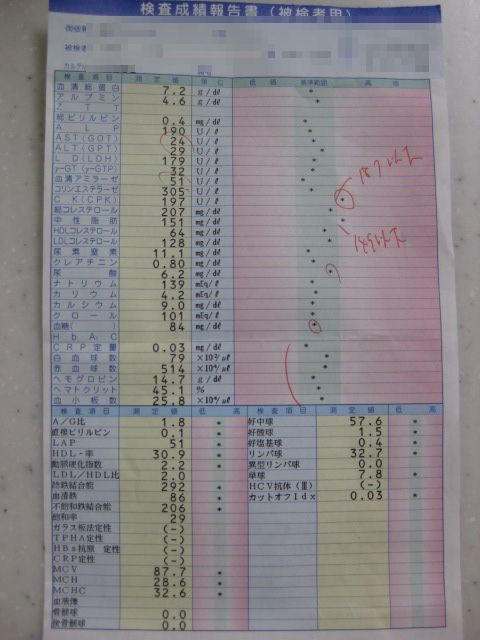 検査成績報告書(被検者用)
検査項目 測定値 単位 低値 基準範囲 高値
血清総蛋白 7.2 g/dℓ *
アルブミン 4.6 g/dℓ *
ZTT
総ビリルビン 0.4 mg/dℓ *
ALP 190 U/ℓ *
AST(GOT) 24 U/ℓ *
ALT(GPT) 29 U/ℓ *
LD(LDH) 179 U/ℓ *
γ-GT(γ-GTP) 32 U/ℓ *
血清アミラーゼ 51 U/ℓ *
コリンエステラーゼ 305 U/ℓ *
CK(CPK) 197 U/ℓ *
総コレステロール 207 mg/dℓ *
中性脂肪 151 mg/dℓ *
HDLコレステロール 64 mg/dℓ *
LDLコレステロール 128 mg/dℓ *
尿素窒素 11.1 mg/dℓ *
クレアチニン 0.80 mg/dℓ *
尿酸 6.2 mg/dℓ *
ナトリウム 139 mEq/ℓ *
カリウム 4.2 mEq/ℓ *
カルシウム 9.0 mg/dℓ *
クロール 101 mEq/ℓ *
血糖( 84 mg/dℓ *
HbA1C
CRP定量 0.03 mg/dℓ *
白血球数 79 ×10²/μℓ *
赤血球数 514 ×10⁴/μℓ *
ヘモグロビン 14.7 g/dℓ *
ヘマトクリット 45.1 % *
血小板数 25.8 ×10⁴/μℓ *
検査項目 測定値 低 高 検査項目 測定値 低 高
A/G比 1.8 * 好中球 57.6 *
直接ビリルビン 0.1 * 好酸球 1.5 *
LAP 51 * 好塩基球 0.4 *
HDL-率 30.9 * リンパ球 32.7 *
動脈硬化指数 2.2 * 異型リンパ球 0.0
LDL/HDL比 2.0 単球 7.8 *
総鉄結合能 292 * HCV抗体(Ⅲ) (-)
血清鉄 86 * カットオフIdx 0.03 *
不飽和鉄結合能 206 *
飽和率 29
ガラス板法定性 (-)
TPHA定性 (-)
HBs抗原 定性 (-)
CRP定性 (-)
MCV 87.7 *
MCH 28.6 *
MCHC 32.6 *
血液像
骨髄球 0.0
後骨髄球 0.0